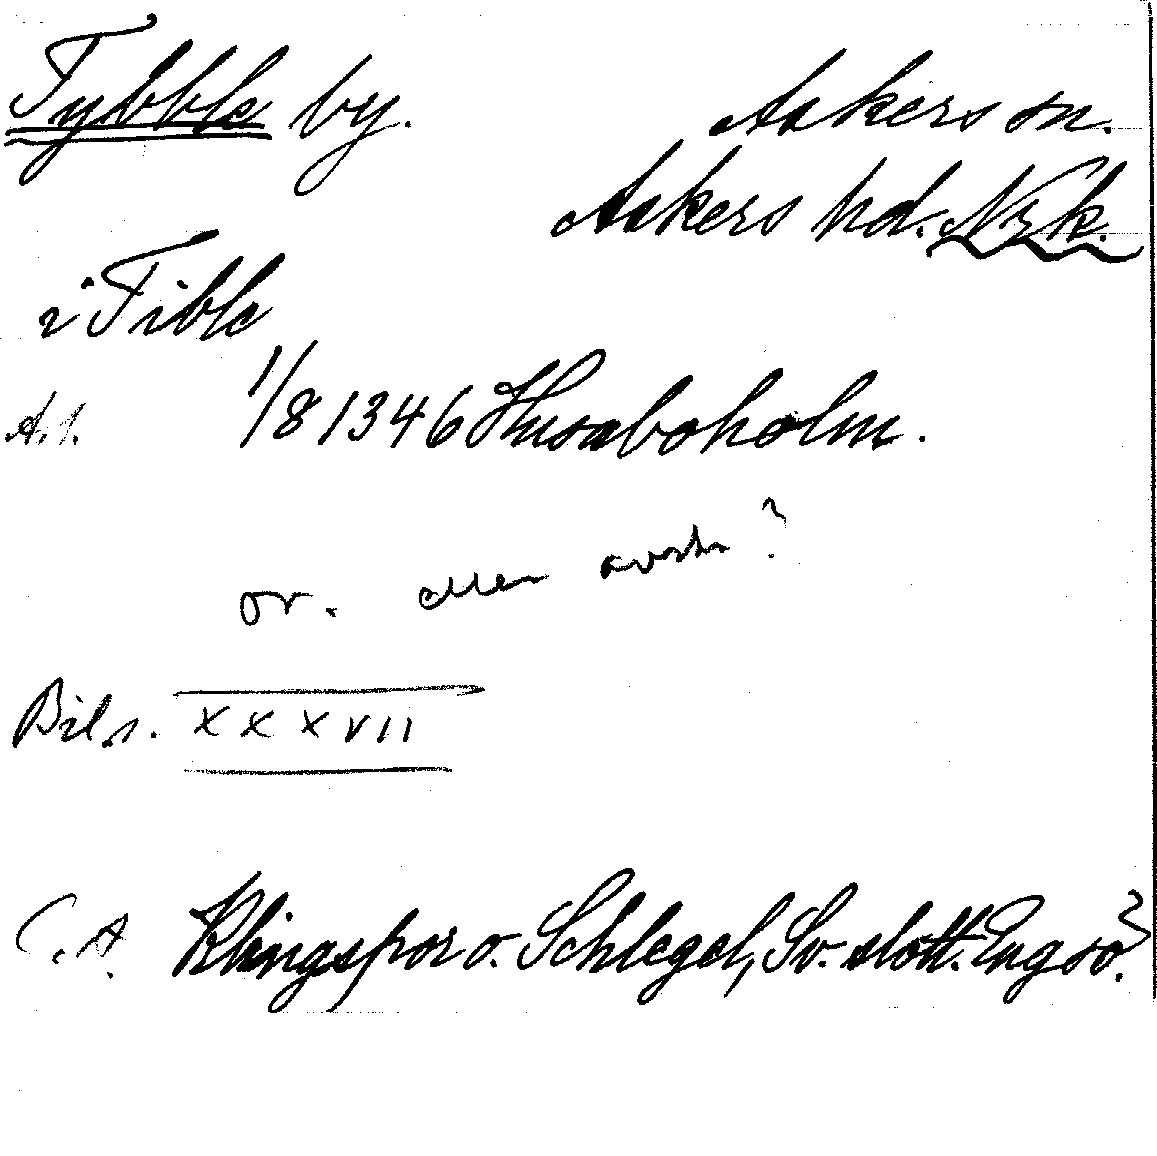 Tybble by. Askers sn.
Askers hd. Nrk.
i Tible
A.1. 1/8 1346 Husaboholm.
or. eller avskr ?
Bil s. XXXVII
C. A. Klingspor o. Schlegel, Sv. slott. Engsö?